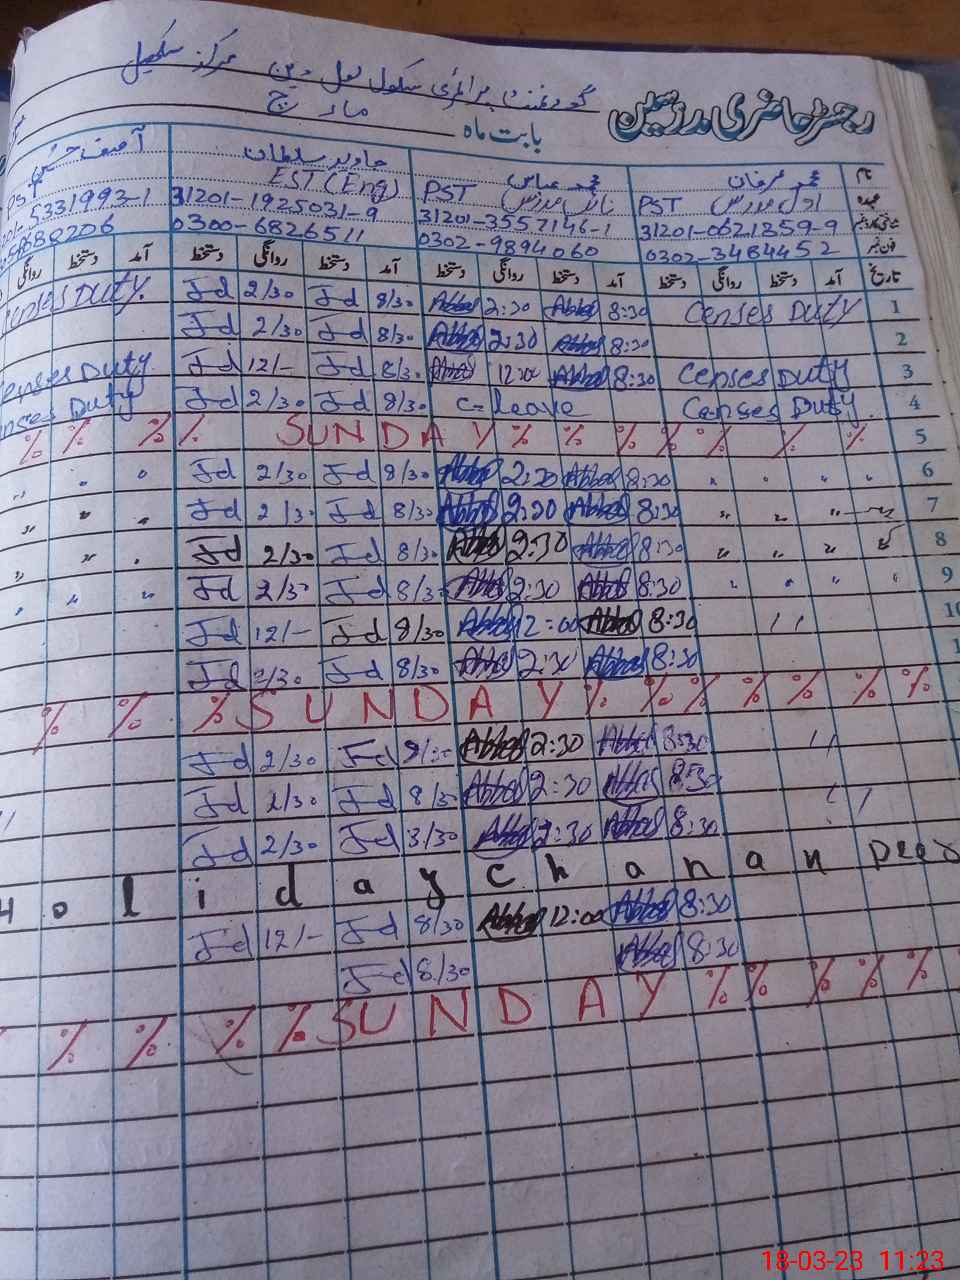 گورنمنٹ پرائمری سکول مرکز
رجسٹر حاضری مدرسین بابت ماہ مارچ
نام محمد عرفان محمد عباس جاوید سلطان آصف
عہدہ PST اول مدرس PST EST (Eng) PST
31201-0621859-9 31201-3557146-1 31201-1925031-9 5331993-1
فون نمبر 0302-3484452 0302-9894060 0300-6826511
تاریخ آمد دستخط روانگی دستخط آمد دستخط روانگی دستخط آمد دستخط روانگی دستخط آمد دستخط روانگی
1 Censes Duty 8:30 Abbas 2:30 Abbas 8/30 Jd 2/30 Jd Censes Duty
2 8:30 Abbas 2:30 Abbas 8/30 Jd 2/30 Jd
3 Censes Duty 8:30 Abbas 12:00 Abbas 8/30 Jd 12/- Jd Censes Duty
4 Censes Duty C-leave 8/30 Jd 2/30 Jd Censes Duty
5 % % SUNDAY % % % % % % %
6 " " " " 8:30 Abbas 2:30 Abbas 8/30 Jd 2/30 Jd " " "
7 " " " 8:30 Abbas 2:30 Abbas 8/30 Jd 2/30 Jd " " "
8 " " " 8:30 Abbas 2:30 Abbas 8/30 Jd 2/30 Jd " " "
9 " " " " 8:30 Abbas 2:30 Abbas 8/30 Jd 2/30 Jd " " "
10 " 8:30 Abbas 12:00 Abbas 8/30 Jd 12/- Jd
8:30 Abbas 2:30 Abbas 8/30 Jd 2/30 Jd
% % % SUNDAY % % % % % % %
8:30 Abbas 2:30 Abbas 8/30 Jd 2/30 Jd
8:30 Abbas 2:30 Abbas 8/30 Jd 2/30 Jd
8:30 Abbas 2:30 Abbas 8/30 Jd 2/30 Jd
Holiday Chanan Peer
8:30 Abbas 12:00 Abbas 8/30 Jd 12/- Jd
8:30 Abbas 8/30 Jd
% % % % SUNDAY % % % % %
18-03-23 11:23